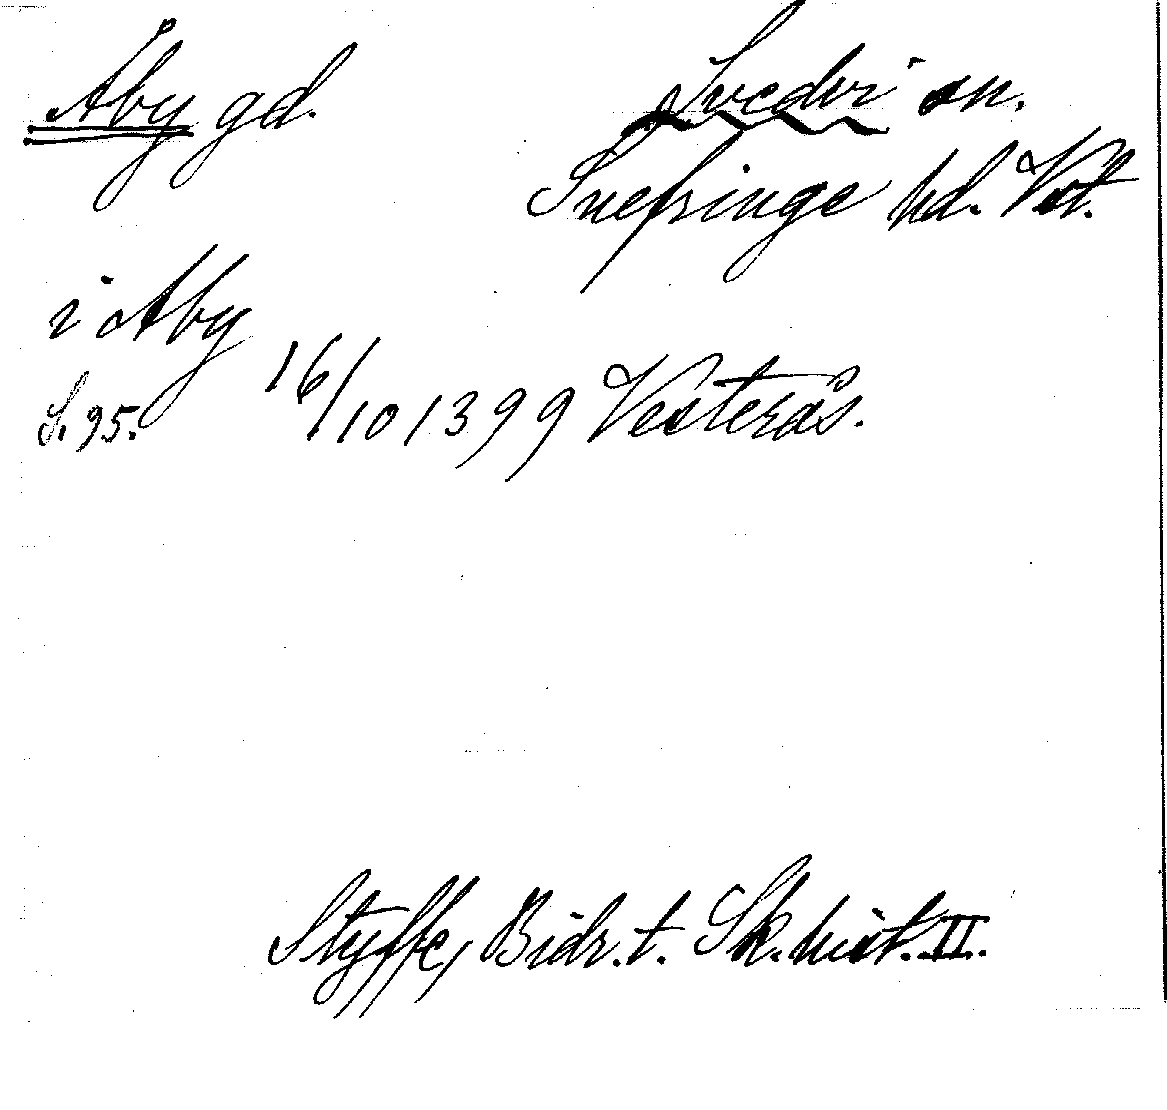 Åby gd.
Svedvi sn.
Snefringe hd. Vst.
i Aby
S. 95. 16/10 1399 Vesterås.
Styffe, Bidr. t. Sk. hist. II.